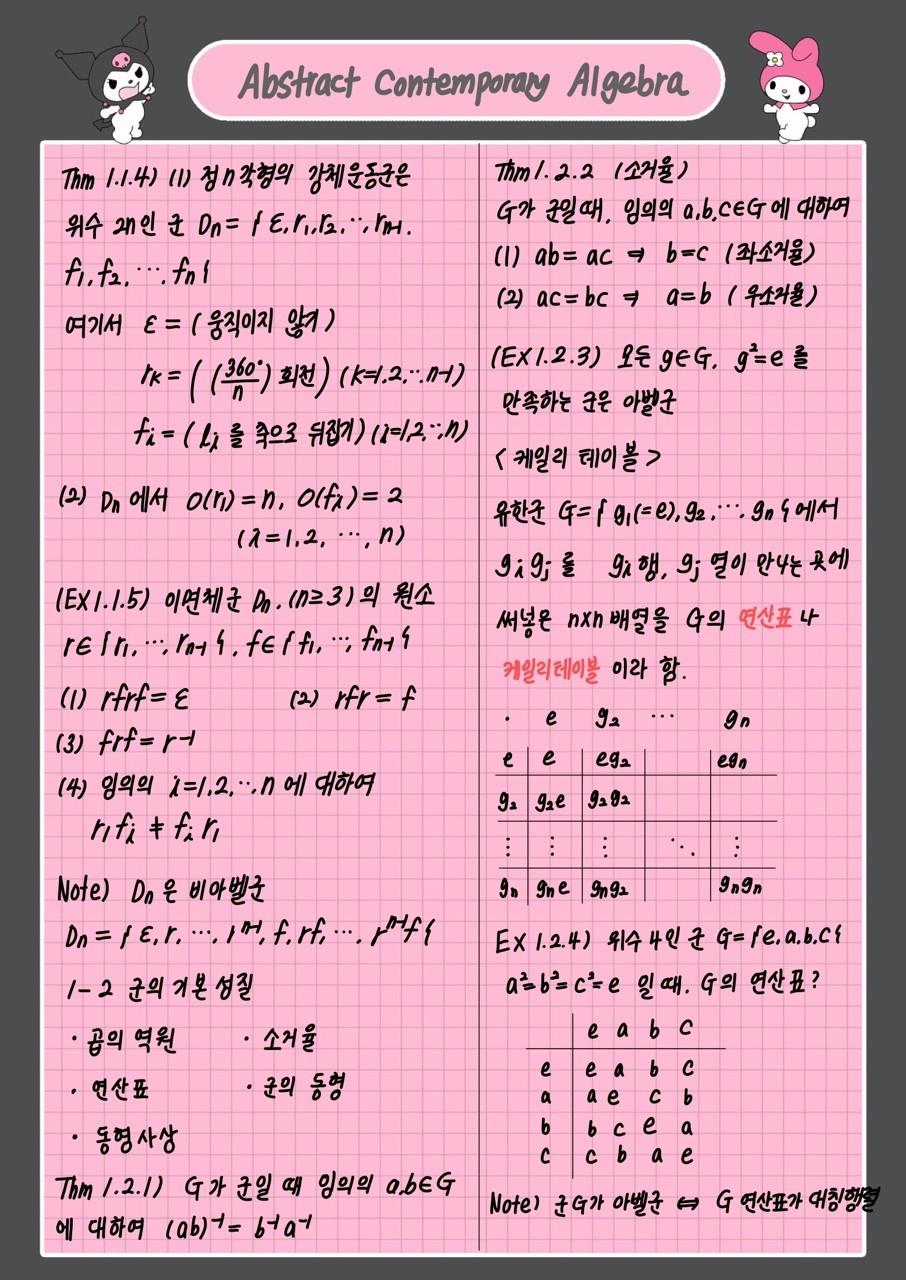 Abstract Contemporary Algebra
Thm 1.1.4) (1) 정n각형의 강체운동군은
위수 2n인 군 Dn = { ε, r₁, r₂, ⋯, rn-1,
f₁, f₂, ⋯, fn }
여기서 ε = (움직이지 않기)
rk = ((360°/n) 회전) (k=1,2,⋯,n-1)
fi = (li를 축으로 뒤집기) (i=1,2,⋯,n)
(2) Dn에서 O(r₁) = n, O(fi) = 2
(i = 1, 2, ⋯, n)
(EX 1.1.5) 이면체군 Dn, (n≥3)의 원소
r∈{r₁, ⋯, rn-1}, f∈{f₁, ⋯, fn-1}
(1) rfrf = ε (2) rfr = f
(3) frf = r⁻¹
(4) 임의의 i=1,2,⋯,n에 대하여
r₁fi ≠ fi r₁
Note) Dn은 비아벨군
Dn = { ε, r, ⋯, rⁿ⁻¹, f, rf, ⋯, rⁿ⁻¹f }
1-2 군의 기본 성질
· 곱의 역원 · 소거율
· 연산표 · 군의 동형
· 동형사상
Thm 1.2.1) G가 군일 때 임의의 a,b∈G
에 대하여 (ab)⁻¹ = b⁻¹a⁻¹
Thm 1.2.2 (소거율)
G가 군일때, 임의의 a,b,c∈G에 대하여
(1) ab = ac ⇒ b=c (좌소거율)
(2) ac = bc ⇒ a=b (우소거율)
(EX 1.2.3) 모든 g∈G, g²=e를
만족하는 군은 아벨군
<케일리 테이블>
유한군 G={g₁(=e), g₂, ⋯, gn}에서
gigj를 gi행, gj열이 만나는 곳에
써넣은 n×n배열을 G의 연산표나
케일리테이블 이라 함.
· e g₂ ⋯ gn
e e eg₂ egn
g₂ g₂e g₂g₂
⋮ ⋮ ⋮ ⋱ ⋮
gn gne gng₂ gngn
EX 1.2.4) 위수 4인 군 G={e,a,b,c}
a²=b²=c²=e 일 때, G의 연산표?
e a b c
e e a b c
a a e c b
b b c e a
c c b a e
Note) 군G가 아벨군 ⇔ G 연산표가 대칭행렬